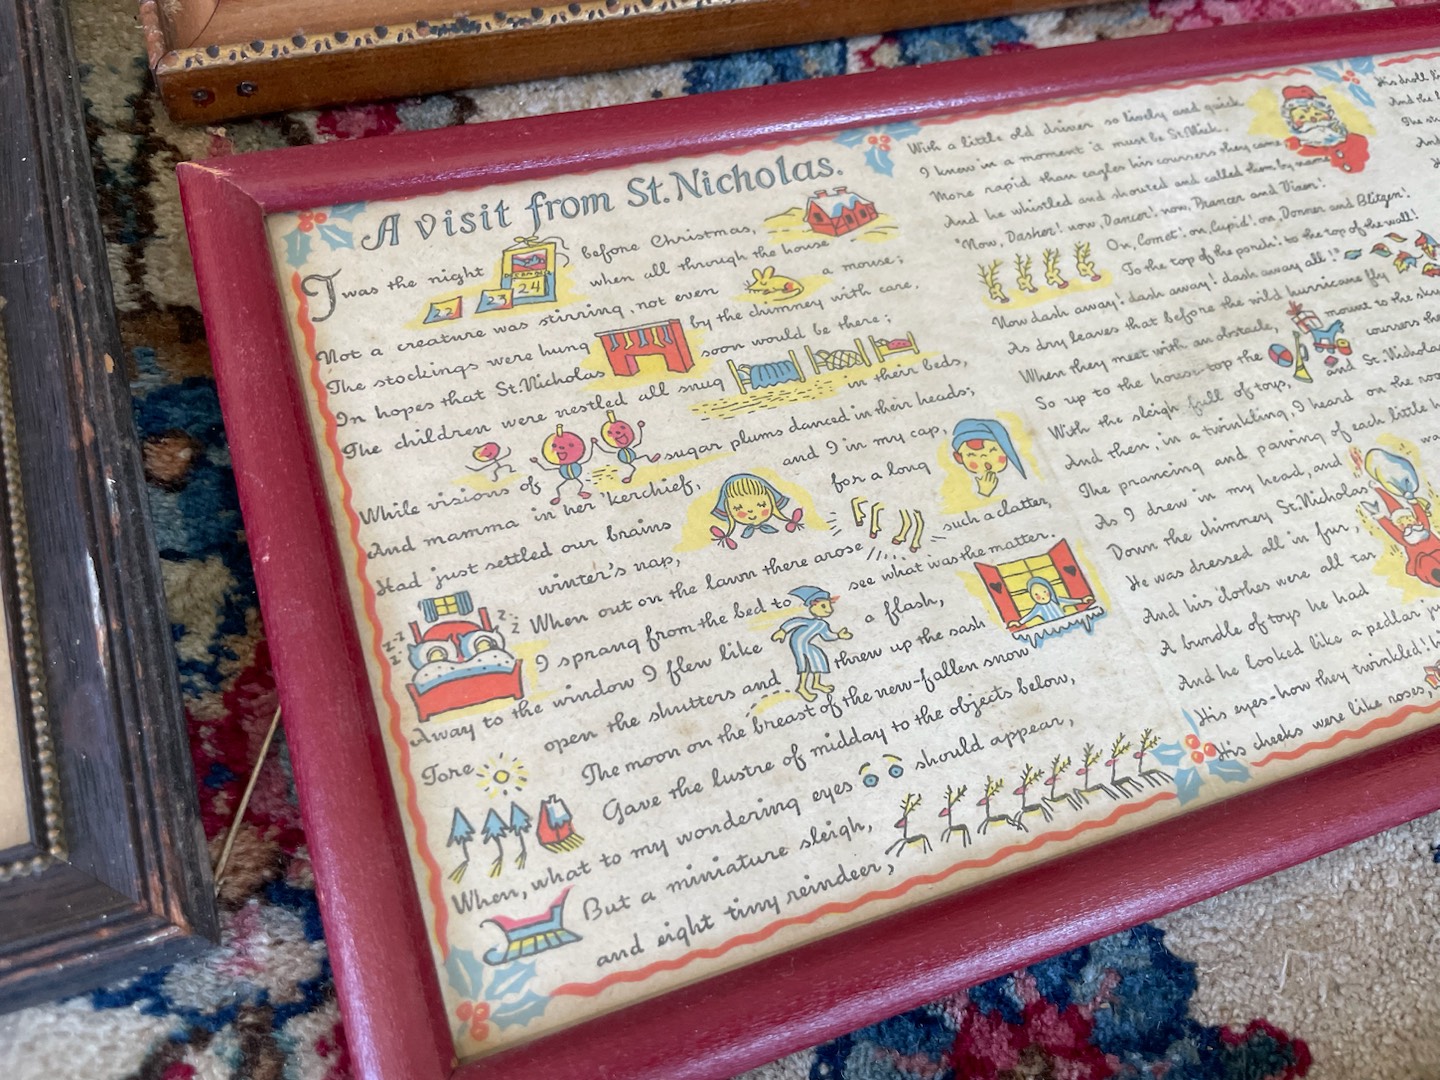 A visit from St. Nicholas.
Twas the night before Christmas,
22 23 24
when all through the house
Not a creature was stirring, not even a mouse;
The stockings were hung by the chimney with care,
In hopes that St. Nicholas soon would be there;
The children were nestled all snug in their beds,
While visions of sugar plums danced in their heads;
And mamma in her 'kerchief, and I in my cap,
Had just settled our brains for a long
winter's nap,
z-z z z z
When out on the lawn there arose such a clatter,
I sprang from the bed to see what was the matter.
Away to the window I flew like a flash,
Tore open the shutters and threw up the sash
The moon on the breast of the new-fallen snow
Gave the lustre of midday to the objects below,
When, what to my wondering eyes should appear,
But a miniature sleigh,
and eight tiny reindeer,
With a little old driver so lively and quick,
I knew in a moment it must be St. Nick.
More rapid than eagles his coursers they came
And he whistled and shouted and called them by name
"Now, Dasher! now, Dancer! now, Prancer and Vixen!
On, Comet! on, Cupid! on, Donner and Blitzen!
To the top of the porch! to the top of the wall!
Now dash away! dash away! dash away all!"
As dry leaves that before the wild hurricane fly
When they meet with an obstacle, mount to the sky
So up to the house-top the coursers
With the sleigh full of toys, and St. Nicholas
And then, in a twinkling, I heard on the
The prancing and pawing of each little
As I drew in my head, and
Down the chimney St. Nicholas
He was dressed all in fur,
And his clothes were all
A bundle of toys he had
And he looked like a pedlar
His eyes-how they twinkled!
His cheeks were like roses,
His droll
And the
The
And